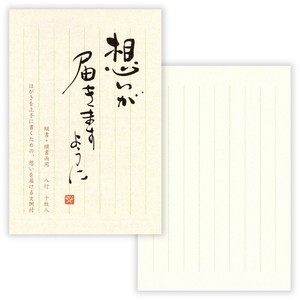 想いが
届きます
ように
縦書・横書両用 八行 十枚入
はがきを上手に書くための、想いを届ける文例付